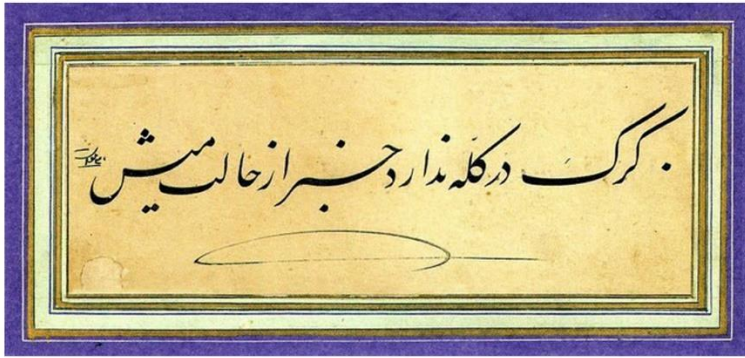 گرگ در گله ندارد خبر از حالت میش